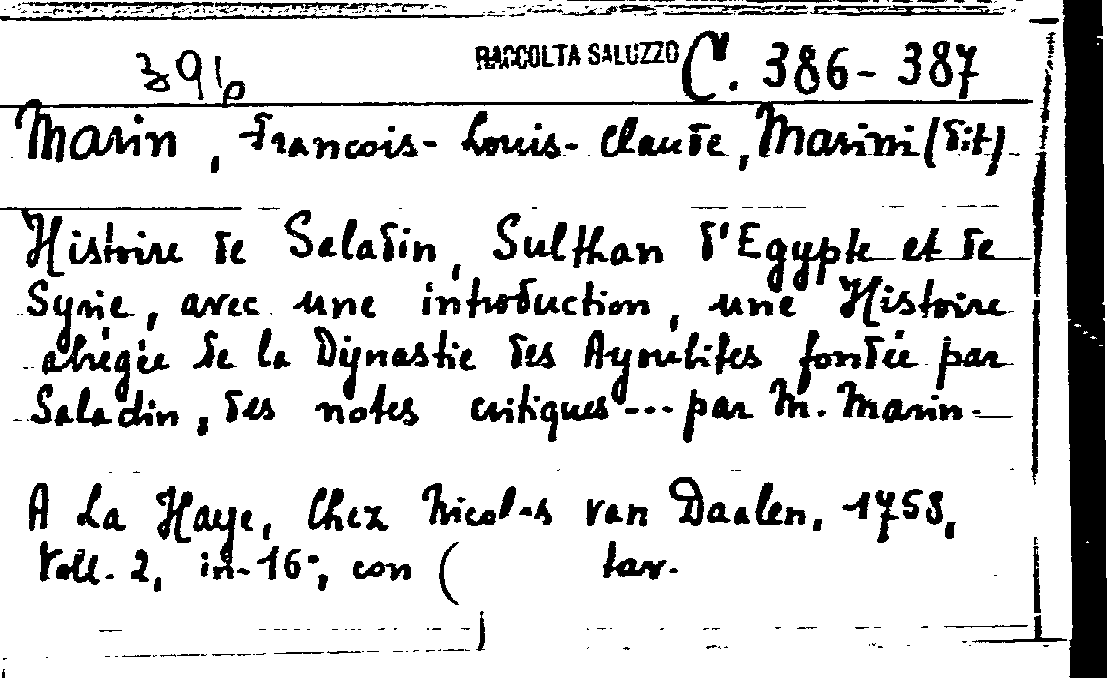 391p RACCOLTA SALUZZO C. 386-387
Marin, Francois-Louis-Claude, Marini (dit)
Histoire de Saladin, Sulthan d'Egypte et de
Syrie, avec une introduction, une Histoire
abrégée de la Dÿnastie des Ayoubites fondée par
Saladin, des notes critiques ... par M. Marin.
A La Haye, Chez Nicolas van Daalen, 1758,
Voll. 2, in-16°, con ( tav.
)